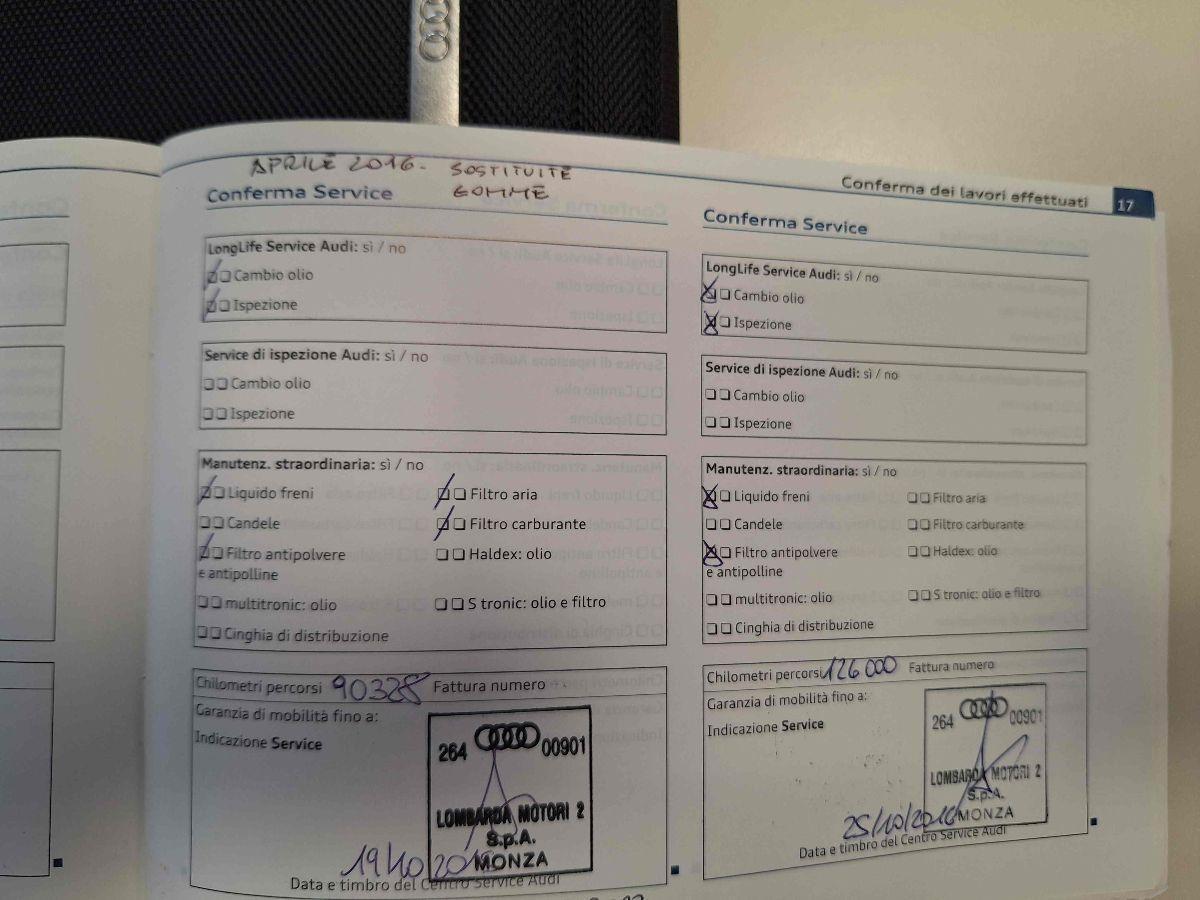 APRILE 2016 - SOSTITUITE
GOMME
Conferma dei lavori effettuati 17
Conferma Service
LongLife Service Audi: sì / no
Cambio olio
Ispezione
Service di ispezione Audi: sì / no
Cambio olio
Ispezione
Manutenz. straordinaria: sì / no
Liquido freni
Filtro aria
Candele
Filtro carburante
Filtro antipolvere
e antipolline
Haldex: olio
multitronic: olio
S tronic: olio e filtro
Cinghia di distribuzione
Chilometri percorsi 90328 Fattura numero
Garanzia di mobilità fino a:
Indicazione Service
264 00901
LOMBARDA MOTORI 2
S.p.A.
MONZA
19/10
Data e timbro del Centro Service Audi
Conferma Service
LongLife Service Audi: sì / no
Cambio olio
Ispezione
Service di ispezione Audi: sì / no
Cambio olio
Ispezione
Manutenz. straordinaria: sì / no
Liquido freni
Filtro aria
Candele
Filtro carburante
Filtro antipolvere
e antipolline
Haldex: olio
multitronic: olio
S tronic: olio e filtro
Cinghia di distribuzione
Chilometri percorsi 126000 Fattura numero
Garanzia di mobilità fino a:
Indicazione Service
264 00901
LOMBARDA MOTORI 2
S.p.A.
MONZA
25/10/2016
Data e timbro del Centro Service Audi